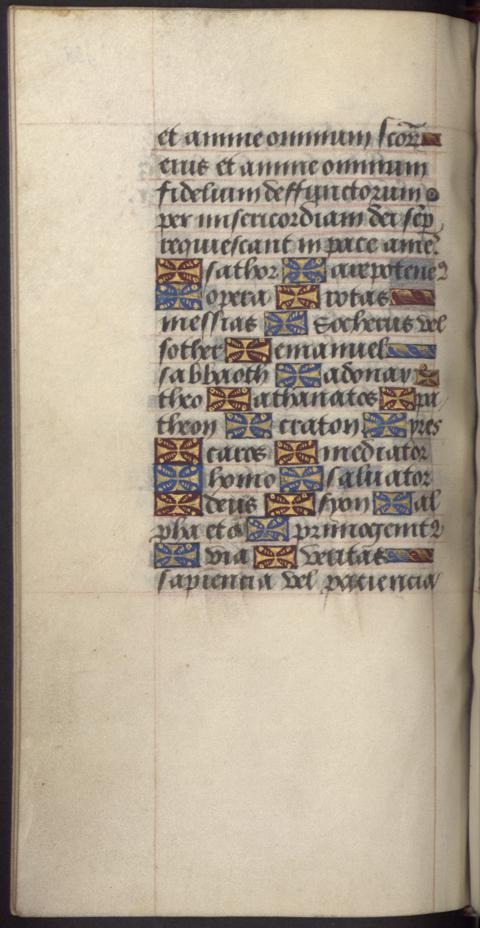 et anime omnium scor̄
eius et anime omnium
fidelium deffunctorum
per misericordiam dei sēp
requiescant in pace ame
sathor arepotene
opera rotas
messias Socherus vel
sother emanuel
sabbaoth adonay
theo athanatos pa
theon craton pres
cares mediator
homo saluator
deus syon al
pha et o primogenit
via veritas
sapiencia vel paciencia